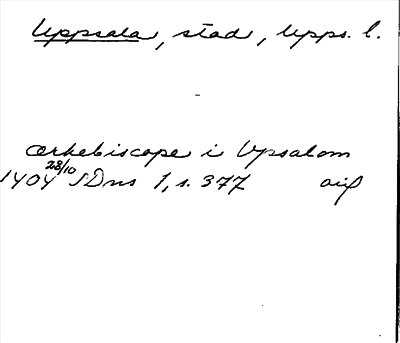 Uppsala, stad, Upps. l.
ærkebiscope i Vpsalom
1404 28/10 SDns 1, s. 377 avs